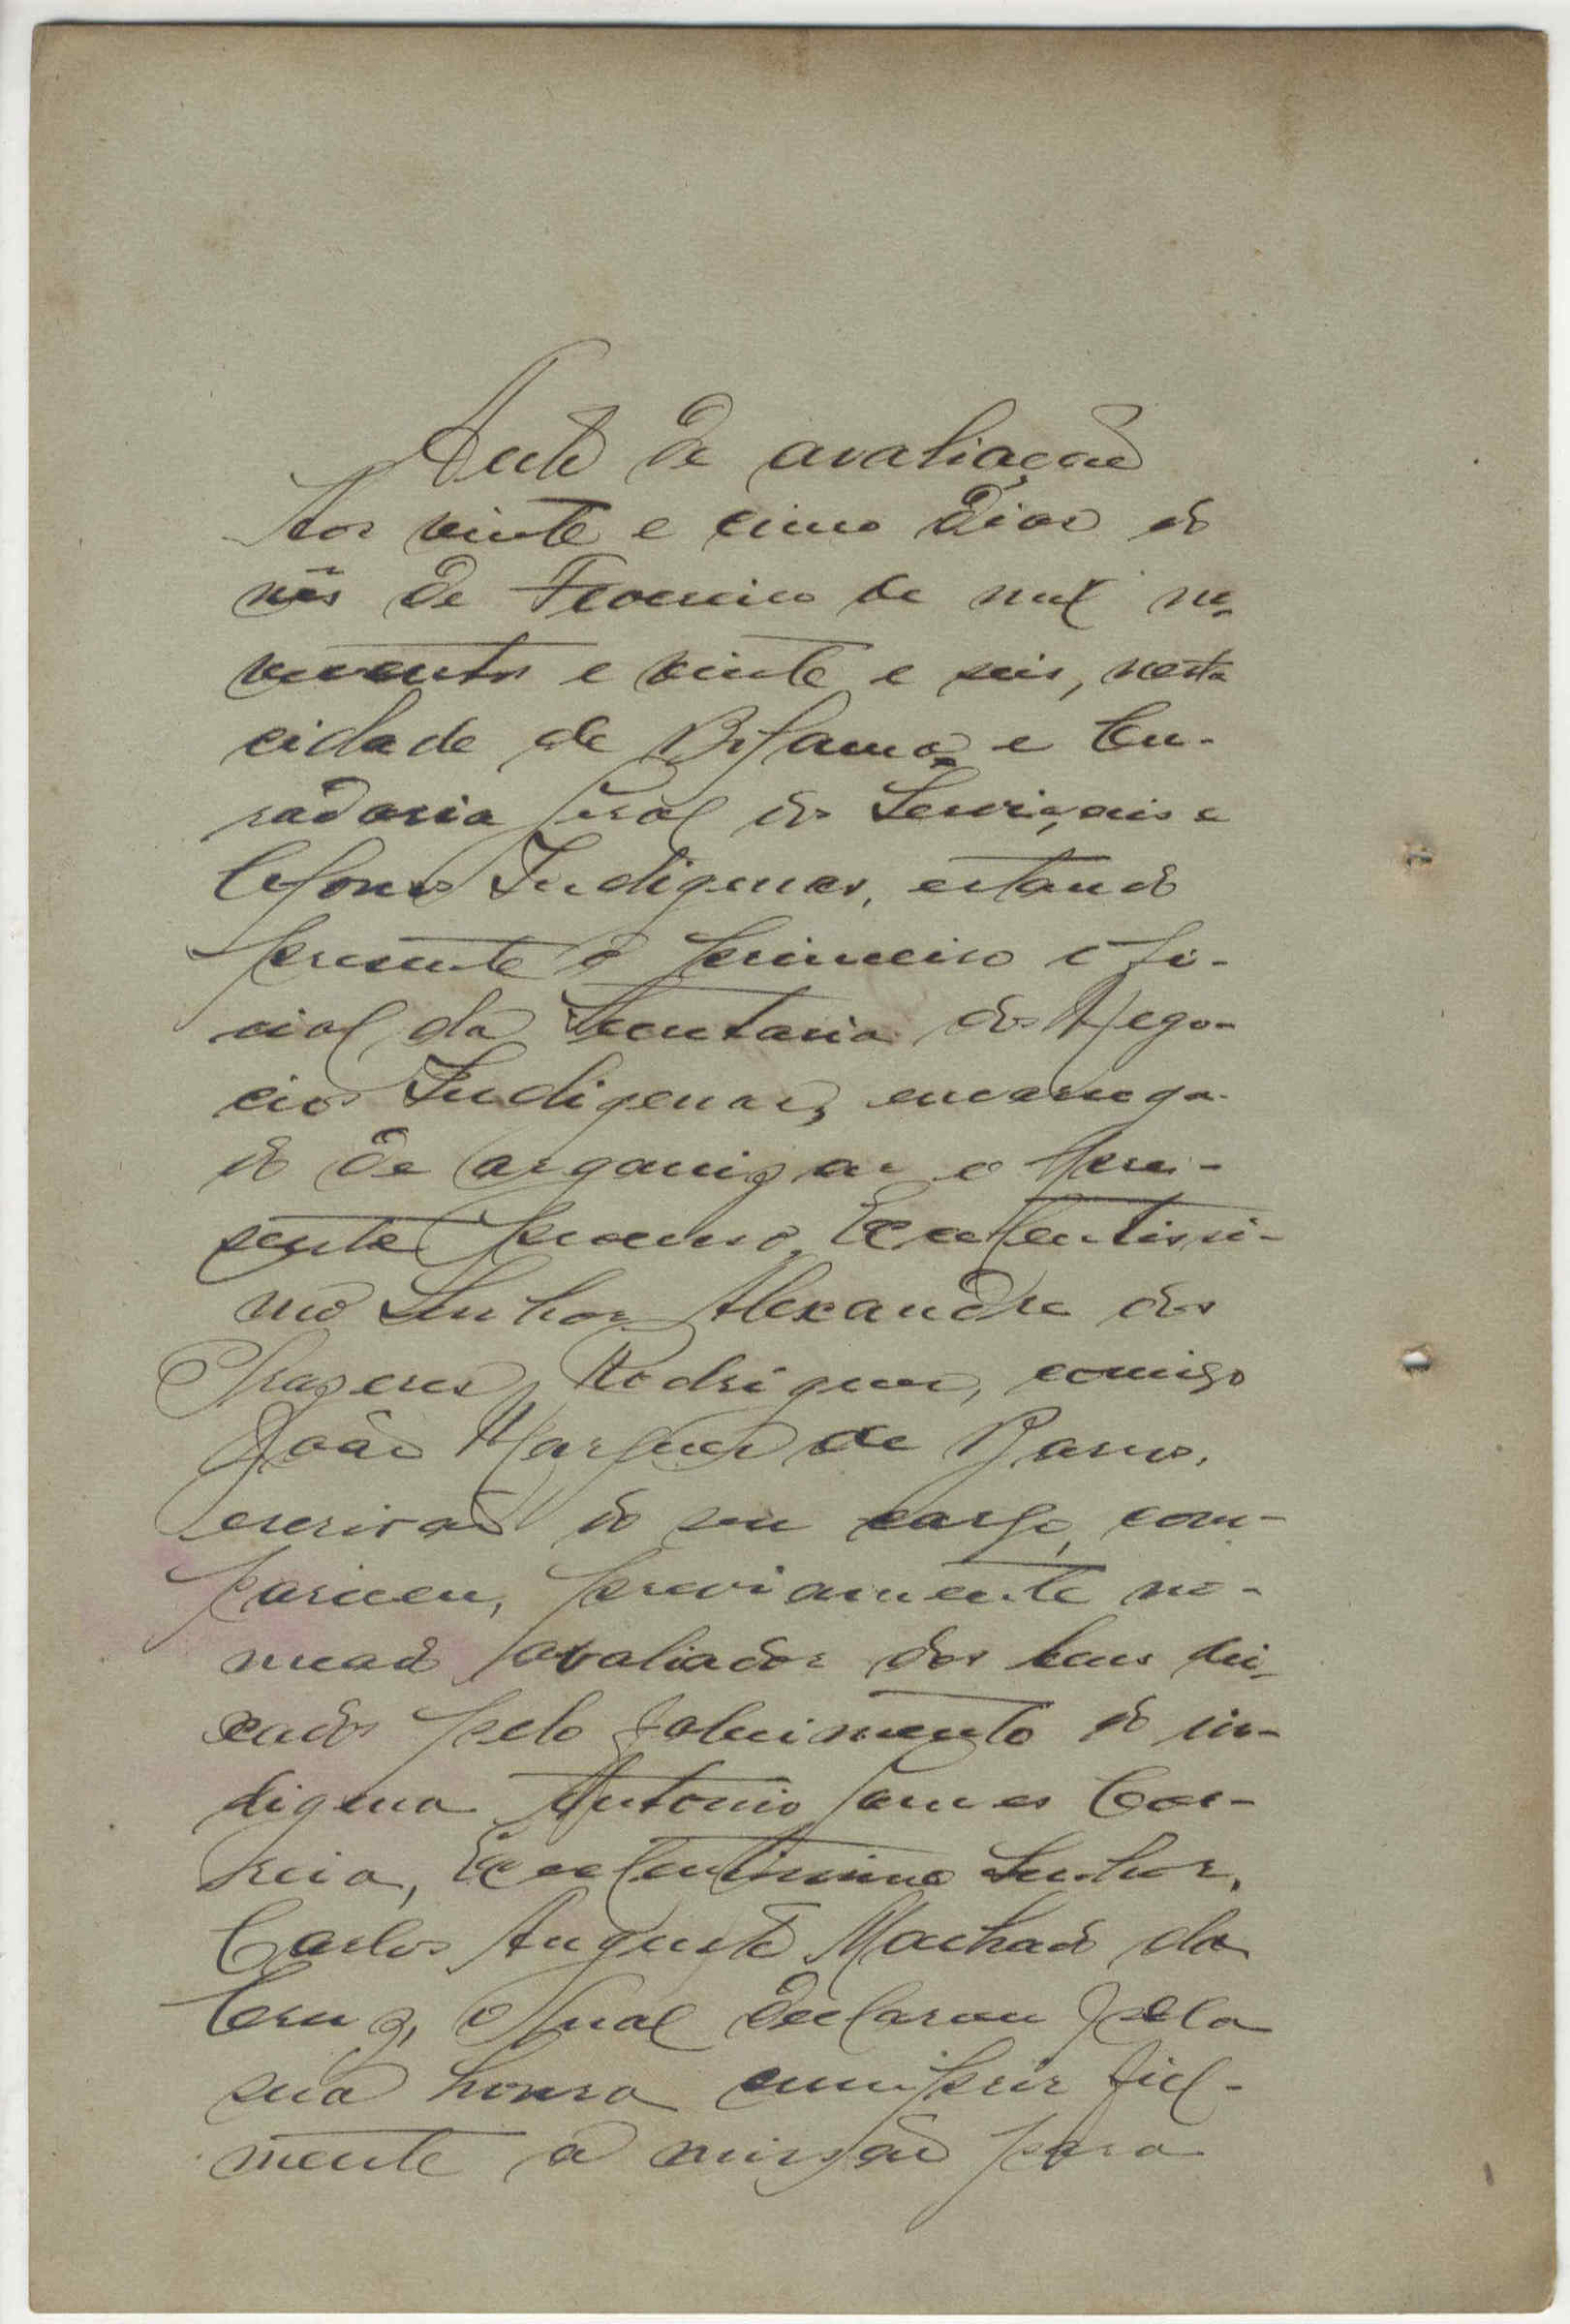 Auto de avaliação
Aos vinte e cinco dias do
mês de Fevereiro de mil no-
vecentos e vinte e seis, nesta
cidade de Bolama e Cu-
radoria Geral dos Serviçais e
Colonos Indigenas, estando
presente o primeiro ofi-
cial da Secretaria dos Nego-
cios Indigenas, encarrega-
do de organizar o pre-
sente processo, Excelentissi-
mo Senhor Alexandre dos
Prazeres Rodrigues, comigo
João Marques de Barros,
escrivão do seu cargo, com-
pareceu, previamente no-
meado avaliador dos bens dei-
xados pelo falecimento do in-
digena Antonio Gomes Cor-
reia, Excelentissimo Senhor,
Carlos Augusto Machado da
Cruz, o qual declarou pela
sua honra cumprir fiel-
mente a missão para